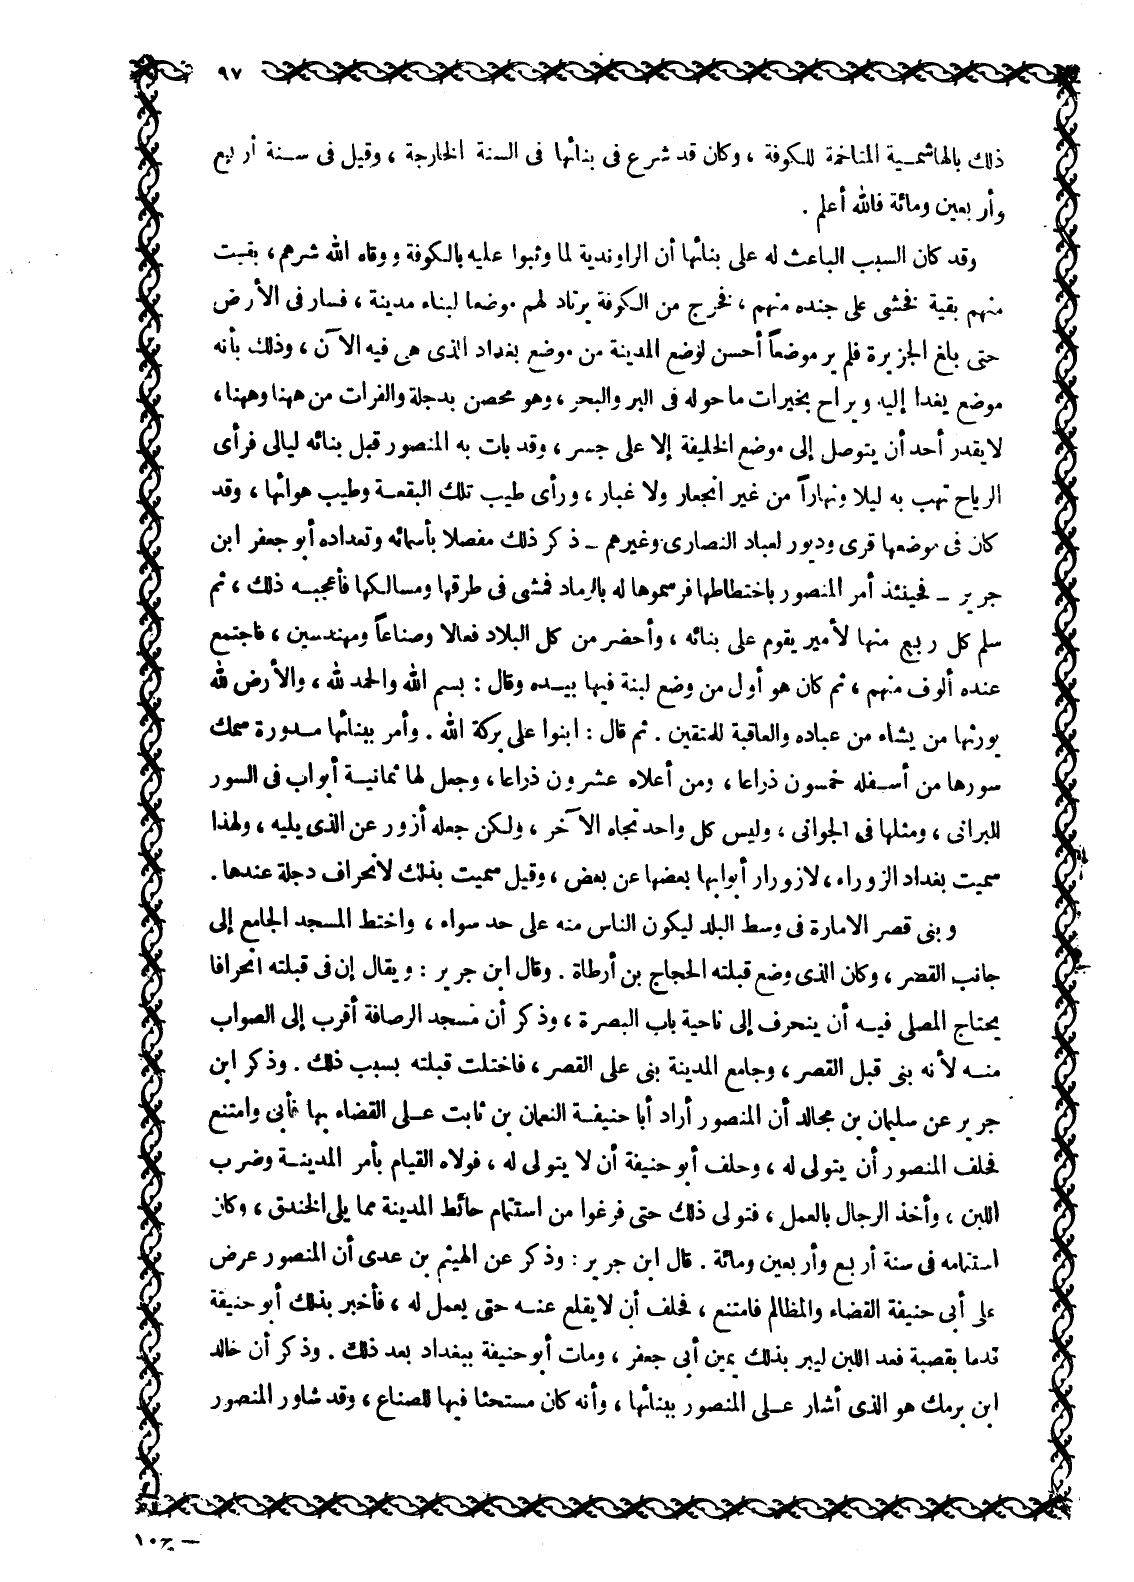 ٩٧
ذلك بالهاشمية المتاخمة للكوفة ، وكان قد شرع فى بنائها فى السنة الخارجة ، وقيل فى سنة أربع
وأربعين ومائة فالله أعلم .
وقد كان السبب الباعث له على بنائها أن الراوندية لما وثبوا عليه بالكوفة ووقاه الله شرهم ، بقيت
منهم بقية فخشى على جنده منهم ، فخرج من الكوفة يرتاد لهم موضعا لبناء مدينة ، فسار فى الأرض
حتى بلغ الجزيرة فلم ير موضعاً أحسن لوضع المدينة من موضع بغداد الذى هى فيه الآن ، وذلك بأنه
موضع يغدا إليه ويراح بخيرات ماحوله فى البر والبحر ، وهو محصن بدجلة والفرات من ههنا وههنا ،
لايقدر أحد أن يتوصل إلى موضع الخليفة إلا على جسر ، وقد بات به المنصور قبل بنائه ليالى فرأى
الرياح تهب به ليلا ونهاراً من غير انجعار ولا غبار ، ورأى طيب تلك البقعة وطيب هوائها ، وقد
كان فى موضعها قرى وديور لعباد النصارى وغيرهم ــ ذكر ذلك مفصلا بأسمائه وتعداده أبو جعفر ابن
جرير ــ فحينئذ أمر المنصور باختطاطها فرسموها له بالرماد فمشى فى طرقها ومسالكها فأعجبه ذلك ، ثم
سلم كل ربع منها لأمير يقوم على بنائه ، وأحضر من كل البلاد فعالا وصناعاً ومهندسين ، فاجتمع
عنده ألوف منهم ، ثم كان هو أول من وضع لبنة فيها بيده وقال : بسم الله والحمد لله ، والأرض لله
يورثها من يشاء من عباده والعاقبة للمتقين . ثم قال : ابنوا على بركة الله . وأمر ببنائها مدورة سمك
سورها من أسفله خمسون ذراعا ، ومن أعلاه عشرون ذراعا ، وجعل لها ثمانية أبواب فى السور
البرانى ، ومثلها فى الجوانى ، وليس كل واحد تجاه الآخر ، ولكن جعله أزور عن الذى يليه ، ولهذا
سميت بغداد الزوراء ، لازورار أبوابها بعضها عن بعض ، وقيل سميت بذلك لانحراف دجلة عندها .
وبنى قصر الامارة فى وسط البلد ليكون الناس منه على حد سواء ، واختط المسجد الجامع إلى
جانب القصر ، وكان الذى وضع قبلته الحجاج بن أرطاة . وقال ابن جرير : ويقال إن فى قبلته انحرافا
يحتاج المصلى فيه أن ينحرف إلى ناحية باب البصرة ، وذكر أن مسجد الرصافة أقرب إلى الصواب
منه لأنه بنى قبل القصر ، وجامع المدينة بنى على القصر ، فاختلت قبلته بسبب ذلك . وذكر ابن
جرير عن سليمان بن مجالد أن المنصور أراد أبا حنيفة النعمان بن ثابت على القضاء بها فأبى وامتنع
فحلف المنصور أن يتولى له ، وحلف أبو حنيفة أن لا يتولى له ، فولاه القيام بأمر المدينة وضرب
اللبن ، وأخذ الرجال بالعمل ، فتولى ذلك حتى فرغوا من استتمام حائط المدينة مما يلى الخندق ، وكان
استتمامه فى سنة أربع وأربعين ومائة . قال ابن جرير : وذكر عن الهيثم بن عدى أن المنصور عرض
على أبى حنيفة القضاء والمظالم فامتنع ، فحلف أن لايقلع عنه حتى يعمل له ، فأخبر بذلك أبو حنيفة
فدعا بقصبة فعد اللبن ليبر بذلك يمين أبى جعفر ، ومات أبو حنيفة ببغداد بعد ذلك . وذكر أن خالد
ابن برمك هو الذى أشار على المنصور ببنائها ، وأنه كان مستحثا فيها للصناع ، وقد شاور المنصور
ــ ج ١٠